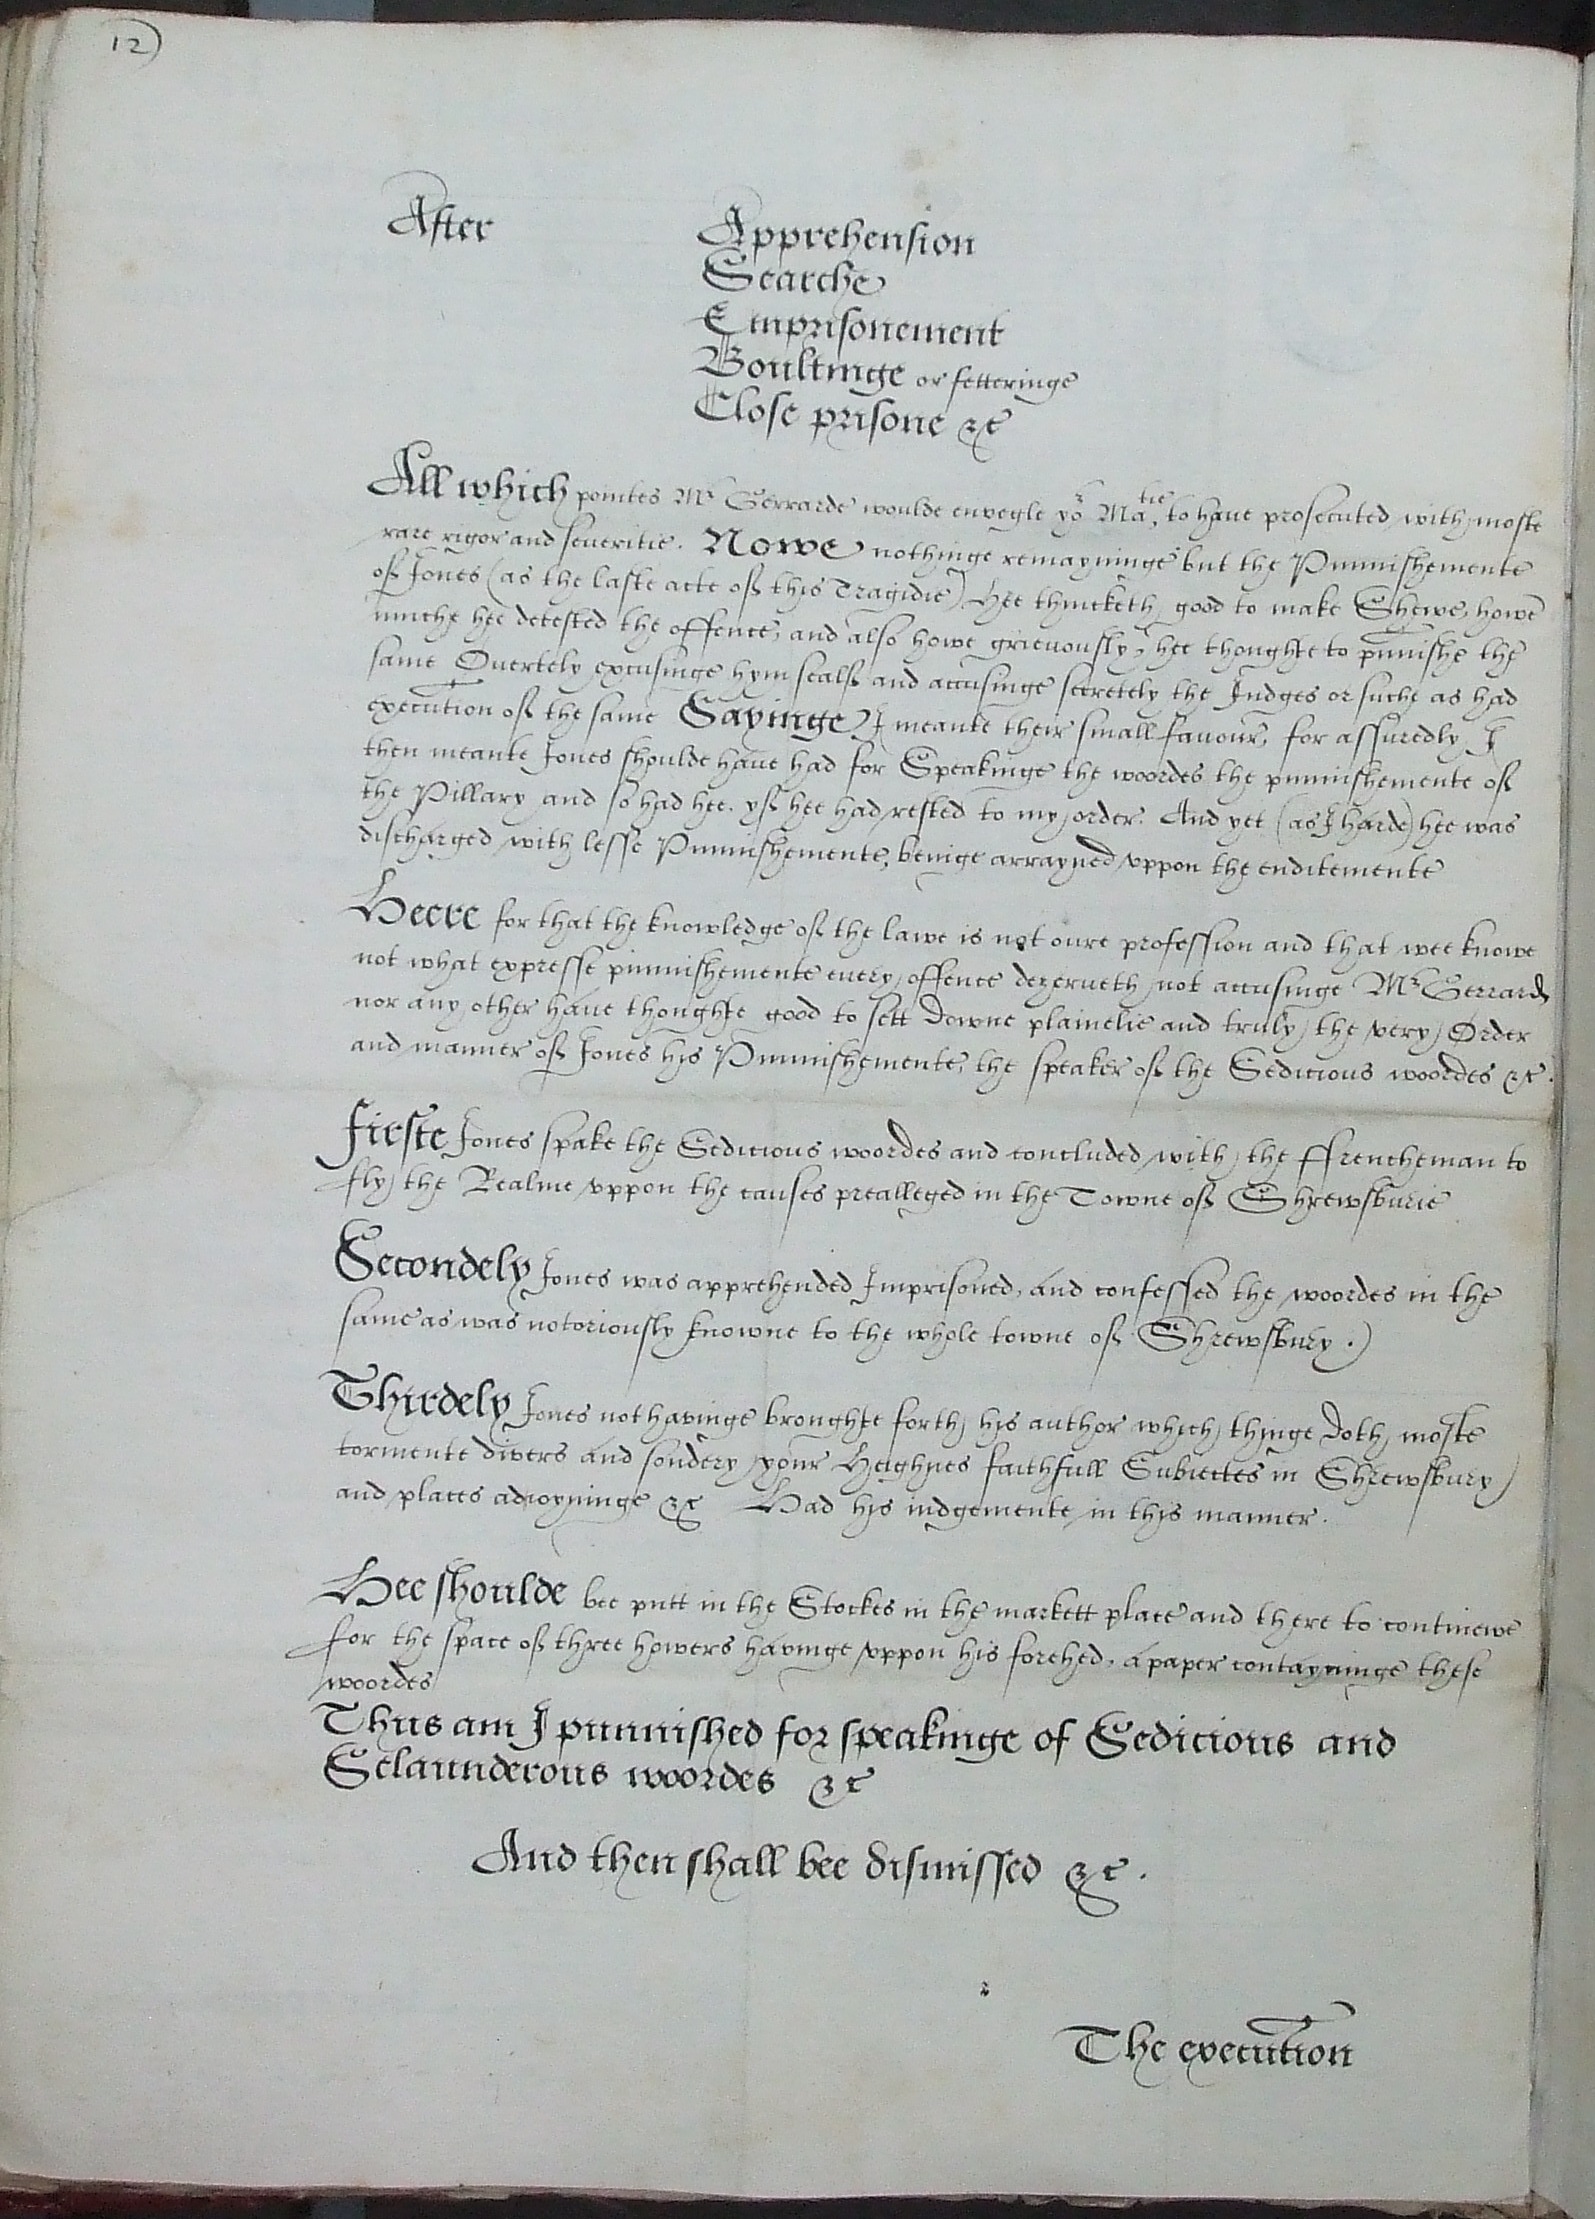 12)
After Apprehension
Searche
Emprisonement
Boultinge or fetteringe
Close prisone &c
All which pointes Mr Gerrarde woulde envegle yor Matie, to haue prosecuted with moste
rare rigor and seueritie. Nowe nothinge remayninge but the Punnishemente
off Jones (as the laste acte off this Tragidie) Hee thincketh good to make Shewe, howe
muche hee detested the offence, and also howe grieuously, hee thoughte to punishe the
same Ouertely excusinge hym sealff and accusinge secretely the Judges or suche as had
execution off the same Sayinge I meante their small fauour, for assuredly I
then meante Jones shoulde haue had for Speakinge the woordes the punnishemente off
the Pillary and so had hee. yff hee had rested to my order. And yet (as I harde) hee was
discharged with lesse Punnishemente, beinge arrayned vppon the enditemente
Heere for that the knowledge off the lawe is not oure profession and that wee knowe
not what expresse punnishemente euery offence dezerueth not accusinge Mr Gerrard,
nor any other haue thoughte good to sett downe plainelie and truly the very Order
and manner off Jones his Punnishemente, the speaker off the Sedicious woordes &c.
Firste Jones spake the Sedicious woordes and concluded with the Ffrencheman to
fly the Realme vppon the causes prealleged in the Towne off Shrewsburie
Secondely Jones was apprehended Imprisoned, and confessed the woordes in the
same as was notoriously knowne to the whole towne off Shrewsbury .)
Thirdely Jones not havinge broughte forth his author which thinge doth moste
tormente divers and sondery your Heighnes faithfull Subiectes in Shrewsbury
and places adioyninge &c Had his iudgemente in this manner.
Hee shoulde bee putt in the Stockes in the markett place and there to continewe
for the space off three howers havinge vppon his forehed, a paper contayninge these
woordes
Thus am I punnished for speakinge of Sedicious and
Sclaunderous woordes &c
And then shall bee dismissed &c.
The execution